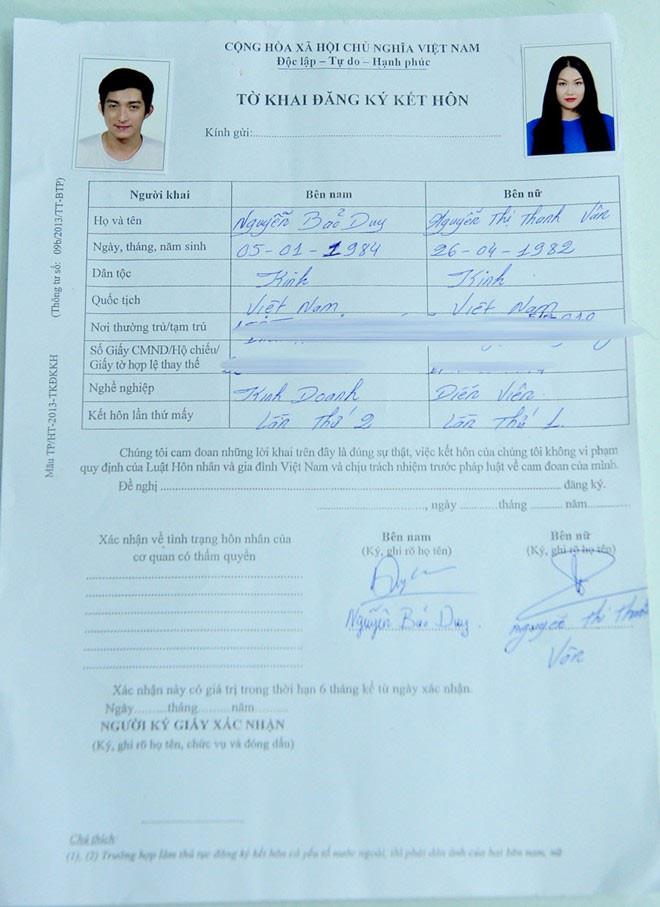 CỘNG HÒA XÃ HỘI CHỦ NGHĨA VIỆT NAM
Độc lập – Tự do – Hạnh phúc
TỜ KHAI ĐĂNG KÝ KẾT HÔN
Kính gửi:
(Thông tư số: 09b/2013/TT-BTP)
Mẫu TP/HT-2013-TKĐKKH
Người khai Bên nam Bên nữ
Họ và tên Nguyễn Bảo Duy Nguyễn Thị Thanh Vân
Ngày, tháng, năm sinh 05-01-1984 26-04-1982
Dân tộc Kinh Kinh
Quốc tịch Việt Nam Việt Nam
Nơi thường trú/tạm trú
Số Giấy CMND/Hộ chiếu/
Giấy tờ hợp lệ thay thế
Nghề nghiệp Kinh Doanh Diễn Viên
Kết hôn lần thứ mấy Lần Thứ 2 Lần Thứ 1
Chúng tôi cam đoan những lời khai trên đây là đúng sự thật, việc kết hôn của chúng tôi không vi phạm
quy định của Luật Hôn nhân và gia đình Việt Nam và chịu trách nhiệm trước pháp luật về cam đoan của mình.
Đề nghị đăng ký.
, ngày tháng năm
Xác nhận về tình trạng hôn nhân của
cơ quan có thẩm quyền
Bên nam Bên nữ
(Ký, ghi rõ họ tên) (Ký, ghi rõ họ tên)
Duy
Nguyễn Bảo Duy
Nguyễn Thị Thanh
Vân
Xác nhận này có giá trị trong thời hạn 6 tháng kể từ ngày xác nhận.
Ngày tháng năm
NGƯỜI KÝ GIẤY XÁC NHẬN
(Ký, ghi rõ họ tên, chức vụ và đóng dấu)
Chú thích:
(1), (2) Trường hợp làm thủ tục đăng ký kết hôn có yếu tố nước ngoài, thì phải dán ảnh của hai bên nam, nữ